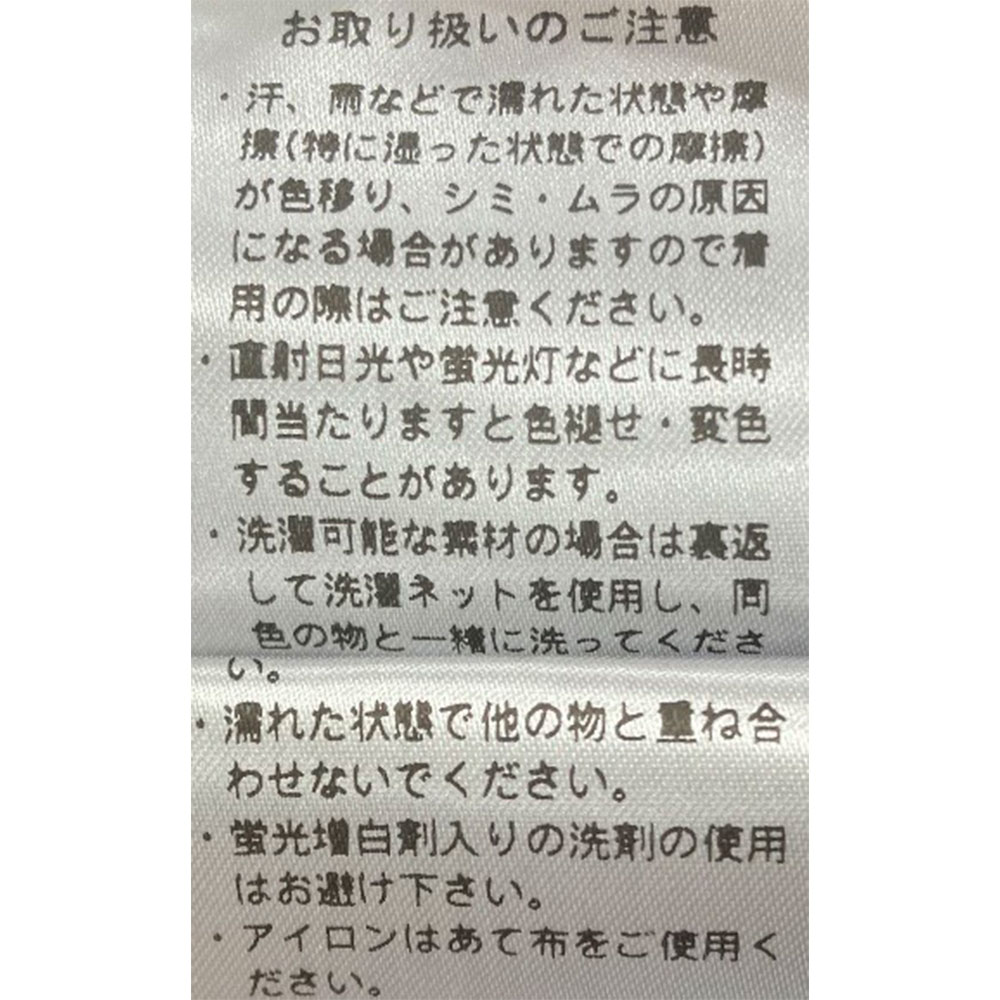 お取り扱いのご注意
・汗、雨などで濡れた状態や摩
擦(特に湿った状態での摩擦)
が色移り、シミ・ムラの原因
になる場合がありますので着
用の際はご注意ください。
・直射日光や蛍光灯などに長時
間当たりますと色褪せ・変色
することがあります。
・洗濯可能な素材の場合は裏返
して洗濯ネットを使用し、同
色の物と一緒に洗ってくださ
い。
・濡れた状態で他の物と重ね合
わせないでください。
・蛍光増白剤入りの洗剤の使用
はお避け下さい。
・アイロンはあて布をご使用く
ださい。